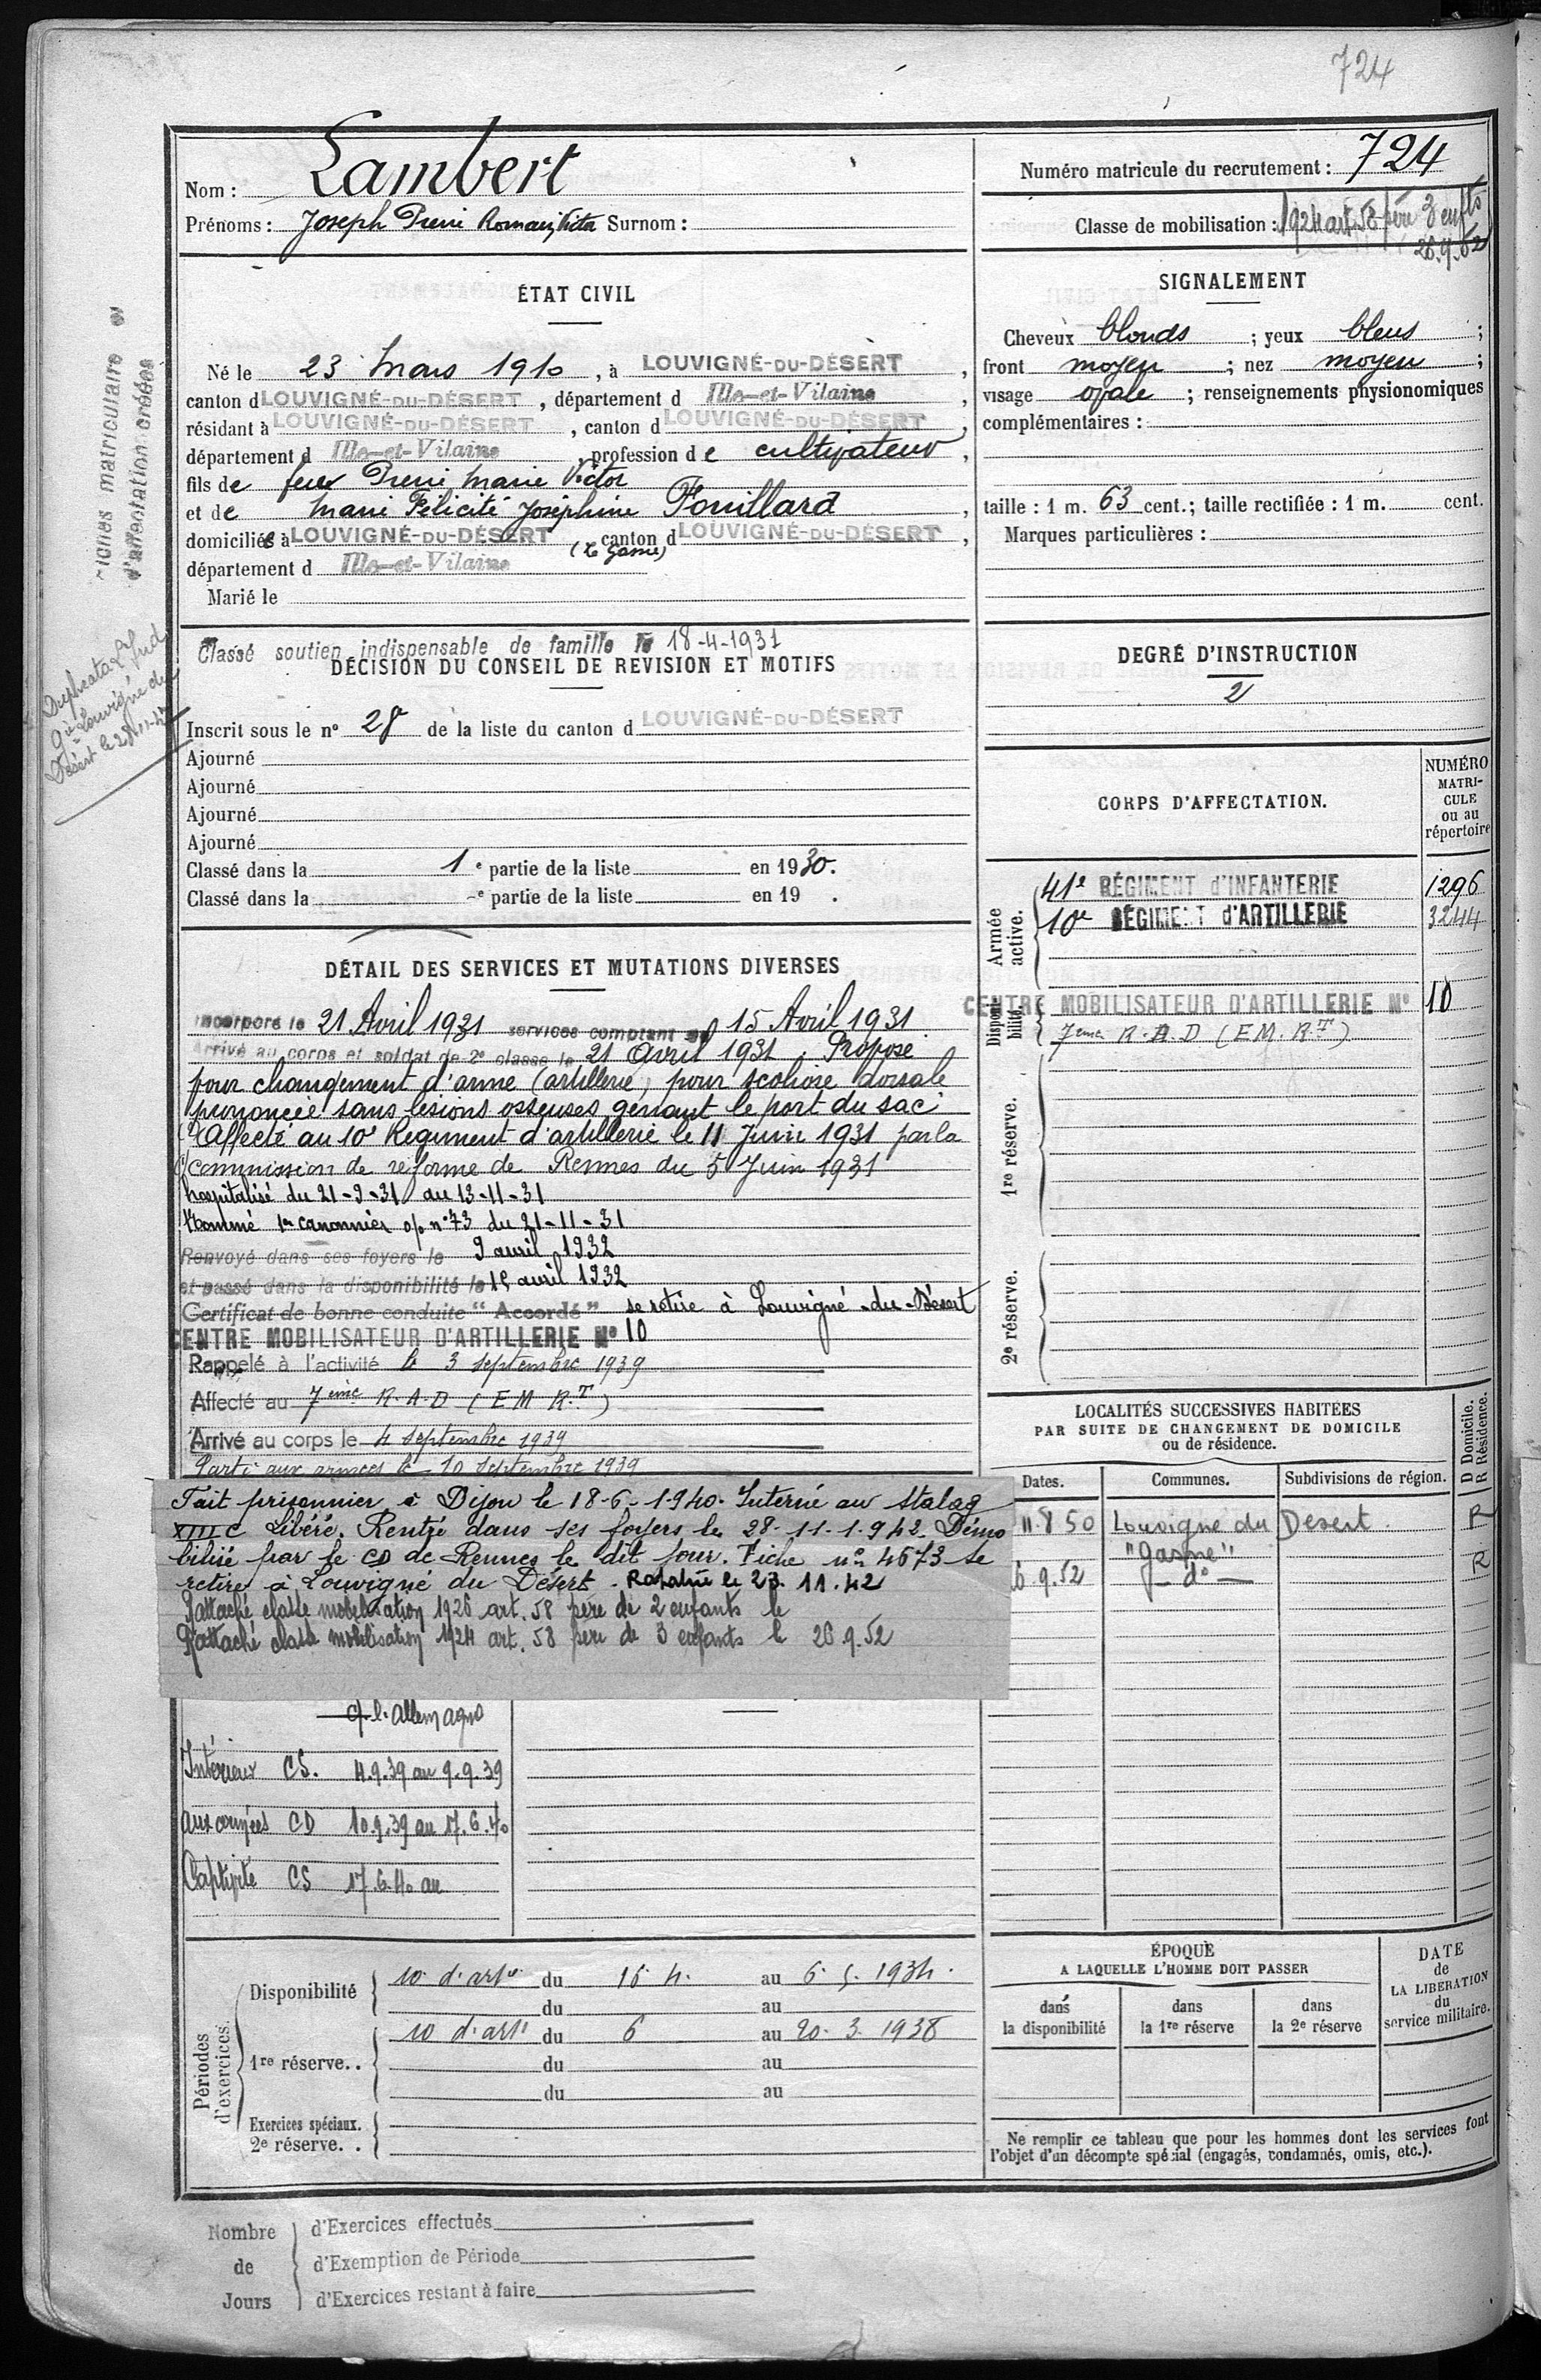 724
Nom : Lambert
Prénoms : Joseph Pierre Surnom :
Numéro matricule du recrutement : 724
Classe de mobilisation : 1924 art 58 père 3 enfts
26.9.52
ÉTAT CIVIL
Né le 23 Mars 1910, à LOUVIGNÉ-DU-DÉSERT,
canton d LOUVIGNÉ-DU-DÉSERT, département d Ille-et-Vilaine,
résidant à LOUVIGNÉ-DU-DÉSERT, canton d LOUVIGNÉ-DU-DÉSERT,
département d Ille-et-Vilaine, profession de cultivateur,
fils de feu Pierre Marie Victor
et de Marie Félicité Joséphine Fouillard,
domiciliés à LOUVIGNÉ-DU-DÉSERT, canton d LOUVIGNÉ-DU-DÉSERT,
département d Ille-et-Vilaine
Marié le
SIGNALEMENT
Cheveux blonds ; yeux bleus ;
front moyen ; nez moyen ;
visage ovale ; renseignements physionomiques
complémentaires :
taille : 1 m. 63 cent.; taille rectifiée : 1 m. cent.
Marques particulières :
Classé soutien indispensable de famille le 18-4-1931
DÉCISION DU CONSEIL DE REVISION ET MOTIFS
Inscrit sous le n° 28 de la liste du canton d LOUVIGNÉ-DU-DÉSERT
Ajourné
Ajourné
Ajourné
Ajourné
Classé dans la 1e partie de la liste en 1930.
Classé dans la e partie de la liste en 19 .
DEGRÉ D'INSTRUCTION
2
CORPS D'AFFECTATION.
NUMÉRO
MATRI-
CULE
ou au
répertoire
Armée active.
41e RÉGIMENT d'INFANTERIE 1296
10e RÉGIMENT d'ARTILLERIE 3244
Disponibilité.
CENTRE MOBILISATEUR D'ARTILLERIE N° 10
7ème R.A.D (E.M.R.T)
1re réserve.
2e réserve.
DÉTAIL DES SERVICES ET MUTATIONS DIVERSES
Incorporé le 21 Avril 1931 services comptant du 15 Avril 1931.
Arrivé au corps et soldat de 2e classe le 21 Avril 1931. Proposé
pour changement d'arme (artillerie) pour scoliose dorsale
prononcée sans lésions osseuses gênant le port du sac.
Affecté au 10e Régiment d'artillerie le 11 Juin 1931 par la
commission de réforme de Rennes du 5 Juin 1931
hospitalisé du 21-9-31 au 13-11-31
Nommé 1er canonnier o/o n° 73 du 21-11-31
Renvoyé dans ses foyers le 9 avril 1932
et passé dans la disponibilité le 15 avril 1932
Certificat de bonne conduite "Accordé" se retire à Louvigné-du-Désert
CENTRE MOBILISATEUR D'ARTILLERIE N° 10
Rappelé à l'activité le 3 septembre 1939
Affecté au 7ème R.A.D (E M R.T)
Arrivé au corps le 4 septembre 1939
Parti aux armées le 10 septembre 1939
Fait prisonnier à Dijon le 18-6-1940. Interné au Stalag
XIII C Libéré. Rentré dans ses foyers le 28-11-1942. Démo
bilisé par le CD de Rennes le dit jour. Fiche n° 4673 se
retire à Louvigné du Désert. Rapatrié le 23.11.42
Rattaché classe mobilisation 1926 art. 58 père de 2 enfants le
Rattaché classe mobilisation 1924 art. 58 père de 3 enfants le 26.9.52
c/ l'Allemagne
Intérieur CS. 4.9.39 au 9.9.39
Aux armées CD 10.9.39 au 17.6.40
Captivité CS 17.6.40 au
LOCALITÉS SUCCESSIVES HABITÉES
PAR SUITE DE CHANGEMENT DE DOMICILE
ou de résidence.
D Domicile.
R Résidence.
Dates. Communes. Subdivisions de région.
11 8 50 Louvigné du Désert R
"Gasne"
6.9.52 - do - R
Périodes d'exercices.
Disponibilité 10 d'artie du 16.4. au 6.5.1934.
du au
1re réserve.. 10 d'artie du 6 au 20.3.1938
du au
du au
Exercices spéciaux.
2e réserve. .
ÉPOQUE
A LAQUELLE L'HOMME DOIT PASSER
dans
la disponibilité
dans
la 1re réserve
dans
la 2e réserve
DATE
de
LA LIBÉRATION
du
service militaire.
Ne remplir ce tableau que pour les hommes dont les services font
l'objet d'un décompte spécial (engagés, condamnés, omis, etc.).
Nombre
de
Jours
d'Exercices effectués
d'Exemption de Période
d'Exercices restant à faire
matriculaire et
d'affectation créées
Louvigné du
Désert le